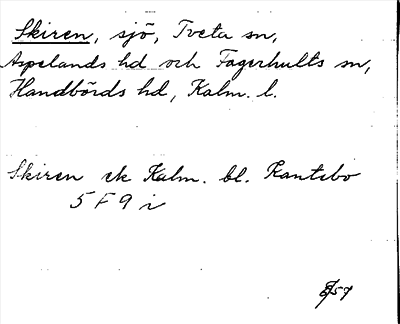 Skiren, sjö, Tveta sn,
Aspelands hd och Fagerhults sn,
Handbörds hd, Kalm. l.
Skiren ek Kalm. bl. Kantebo
5 F 9 i
57